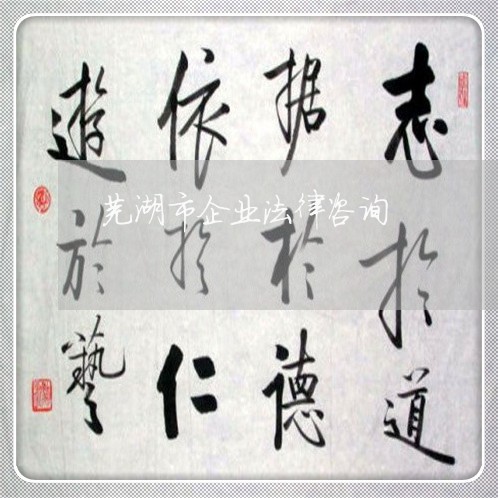 志於道
据於德
依於仁
遊於藝
芜湖市企业法律咨询